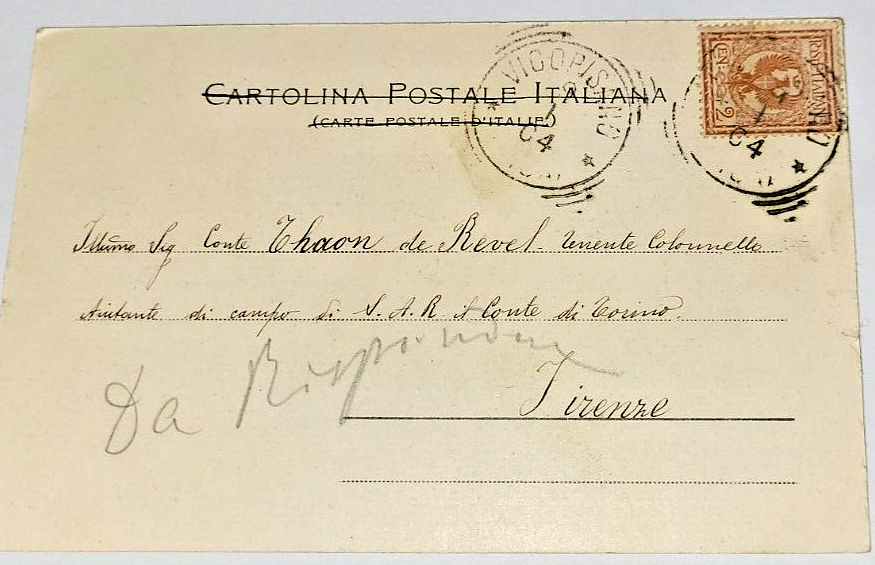 CARTOLINA POSTALE ITALIANA
(CARTE POSTALE D'ITALIE)
VICOPISANO
04
04
Illumo Sig Conte Thaon de Revel - Tenente Colonnello
Aiutante di campo di S. A. R il Conte di Torino.
Da Rispondere
Firenze